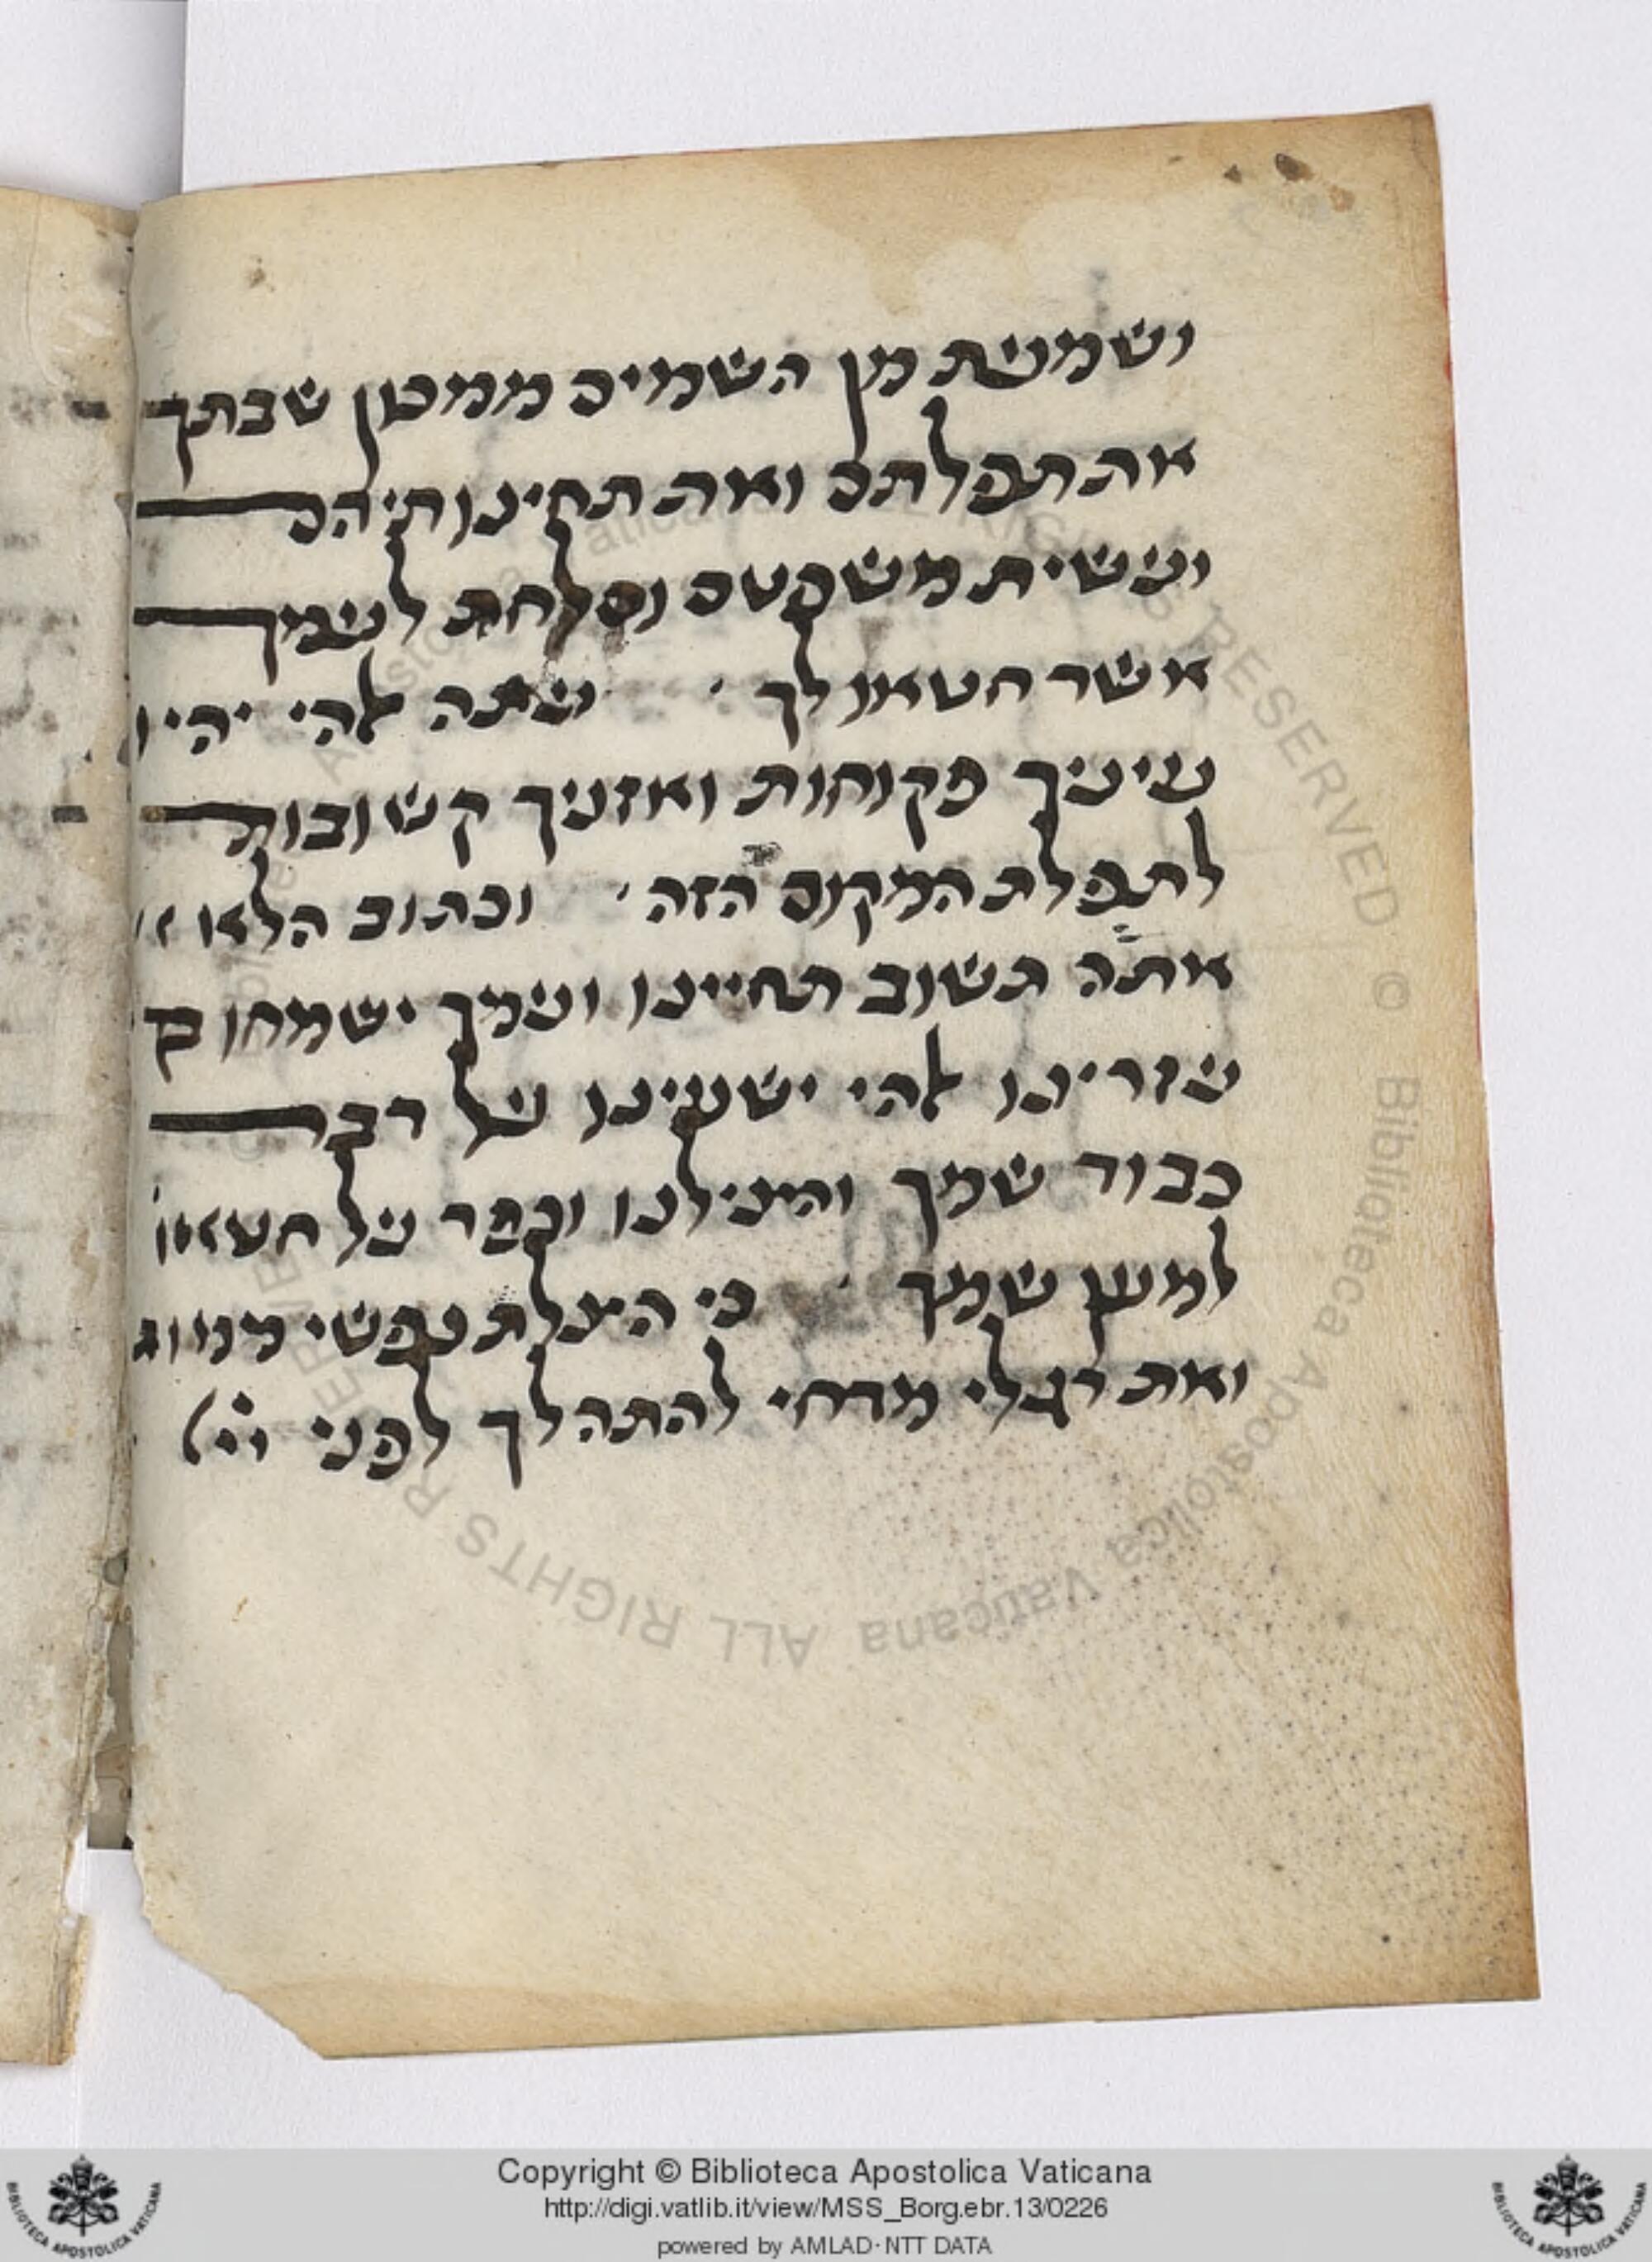 ושמעת מן השמים ממכון שבתך
את תפלתם ואת תחינותיהם
ועשית משפטם וסלחת לעמך
אשר חטאו לך עתה אלהי יהיו
עיניך פקוחות ואזניך קשובות
לתפלת המקום הזה וכתוב הלא
אתה תשוב תחיינו ועמך ישמחו בך
עזרינו אלהי ישעינו על דבר
כבוד שמך והצילנו וכפר על חטאו
למען שמך כי הצלת נפשי ממות
ואת רגלי מדחי להתהלך לפני ייי
Copyright © Biblioteca Apostolica Vaticana
http://digi.vatlib.it/view/MSS_Borg.ebr.13/0226
powered by AMLAD·NTT DATA
BIBLIOTECA APOSTOLICA VATICANA
BIBLIOTECA APOSTOLICA VATICANA
© Biblioteca Apostolica Vaticana ALL RIGHTS RESERVED